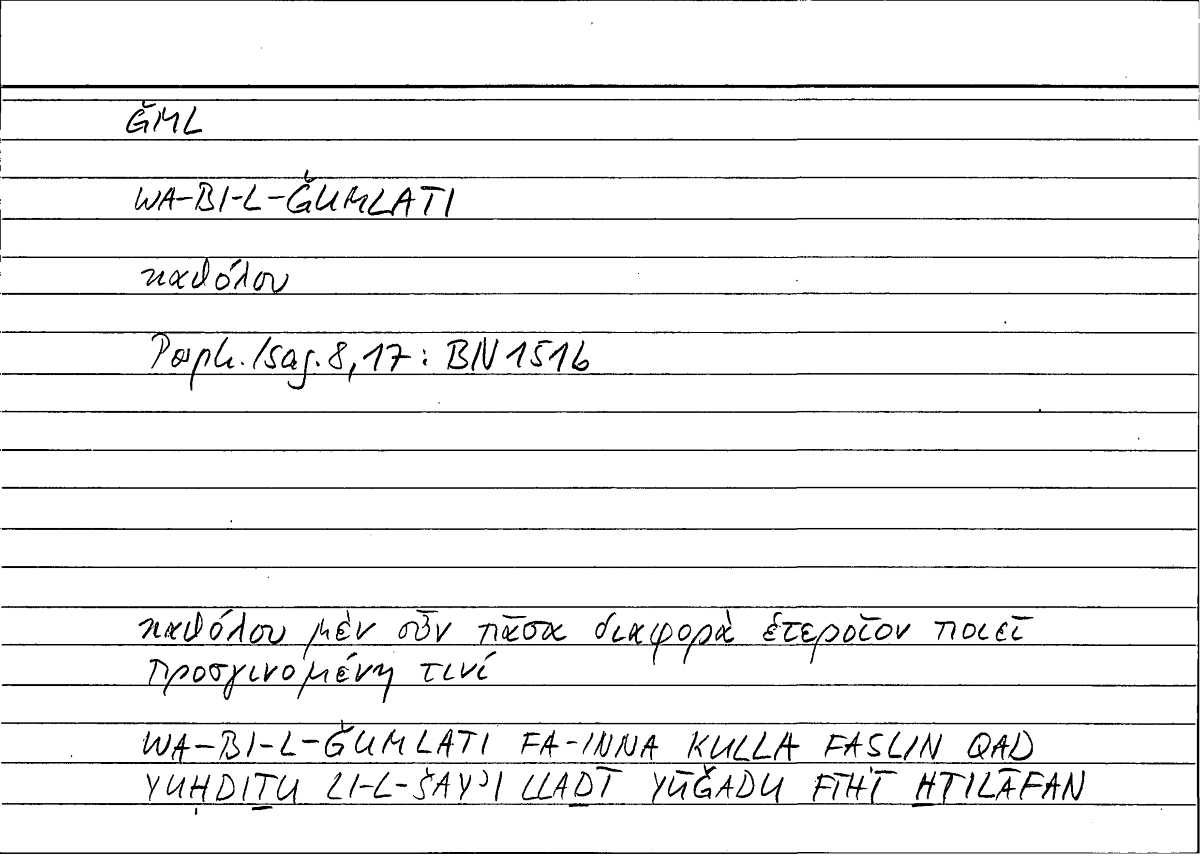 ǦML
WA-BI-L-ǦUMLATI
καθόλου
Porph. Isag. 8,17 : BN 151b
καθόλου μὲν οὖν πᾶσα διαφορὰ ἑτεροῖον ποιεῖ
προσγινομένη τινί
WA-BI-L-ǦUMLATI FA-INNA KULLA FASLIN QAD
YUḤDIṮU LI-L-ŠAYʾI LLAḎĪ YŪǦADU FĪHĪ ḪTILĀFAN